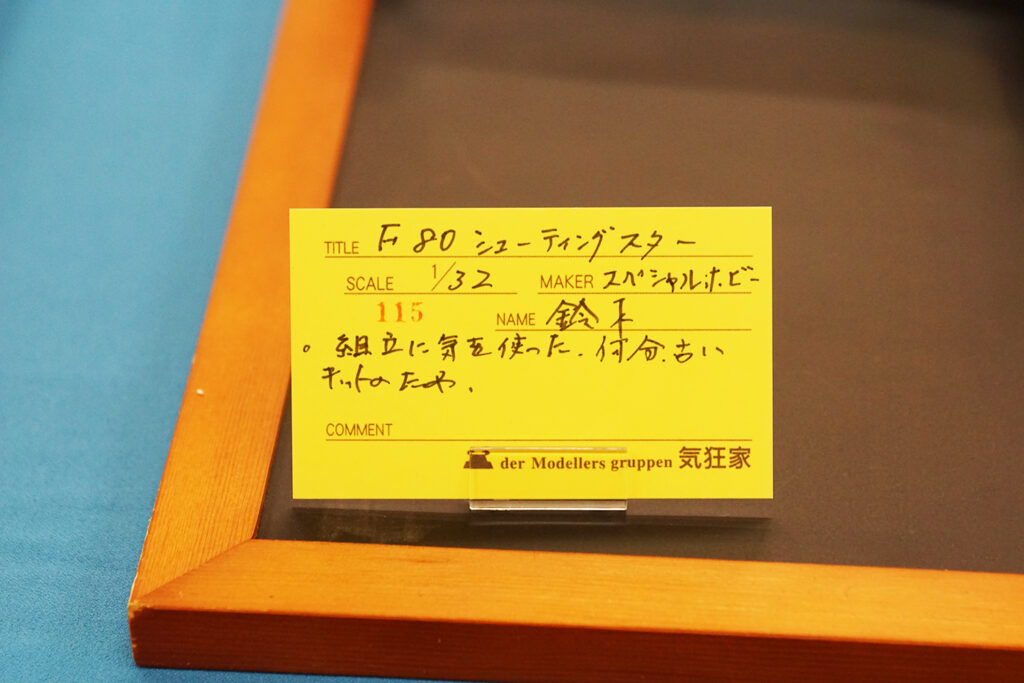 TITLE F-80 シューティングスター
SCALE 1/32 MAKER スペシャルホビー
115 NAME 鈴木
。組立に気を使った.何分.古い
キットのため.
COMMENT
der Modellers gruppen 気狂家